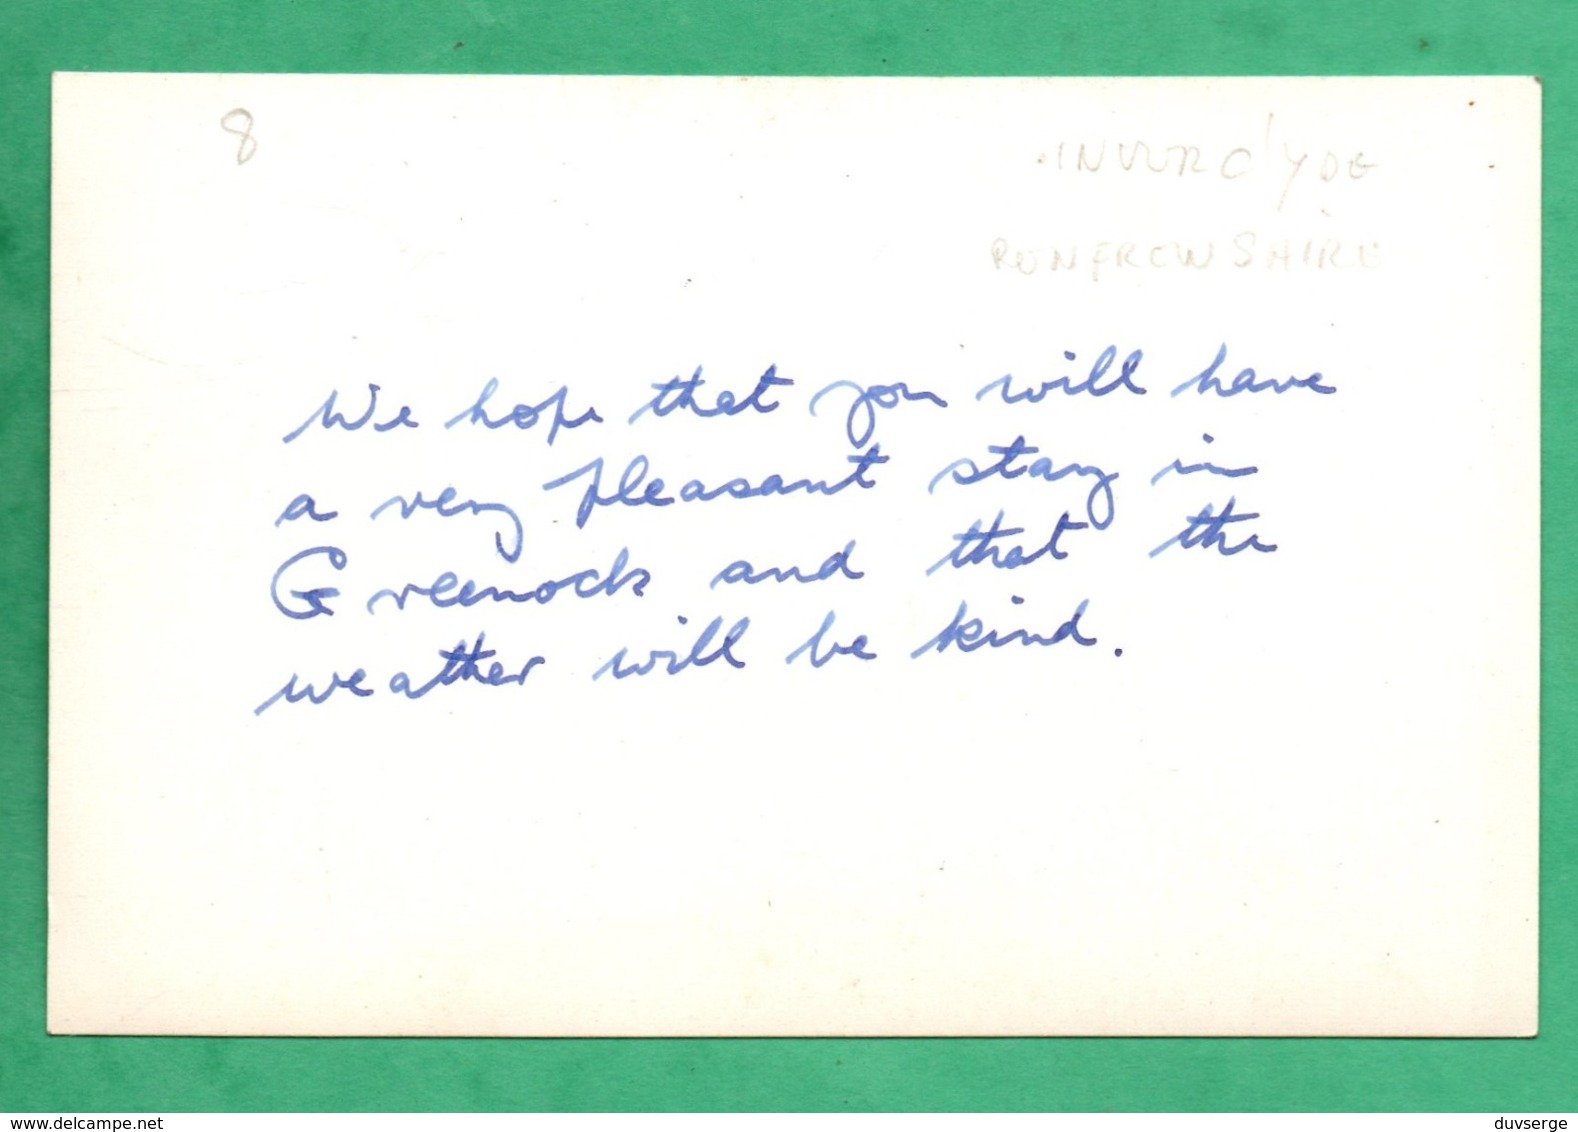 8
INVERClYDE
RENFREWSHIRE
We hope that you will have
a very pleasant stay in
Greenock and that the
weather will be kind.
www.delcampe.net
duvserge